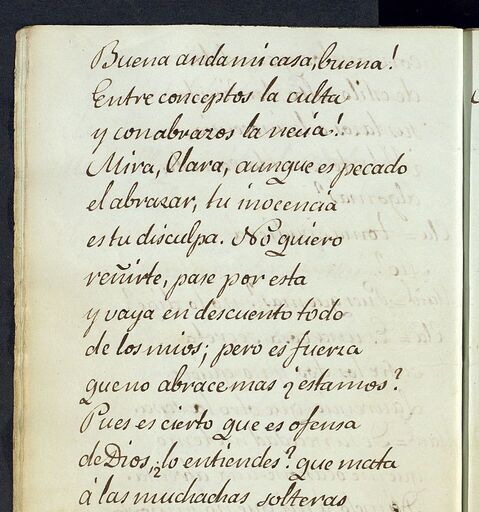 Buena anda mi casa, buena!
Entre conceptos la culta
y con abrazos la necia!
Mira, Clara, aunque es pecado
el abrazar, tu inocencia
es tu disculpa. No quiero
reñirte, pase por esta
y vaya en descuento todo
de los mios; pero es fuerza
que no abrace mas ¿estamos?
Pues es cierto que es ofensa
de Dios, ¿lo entiendes? que mata
á las muchachas solteras